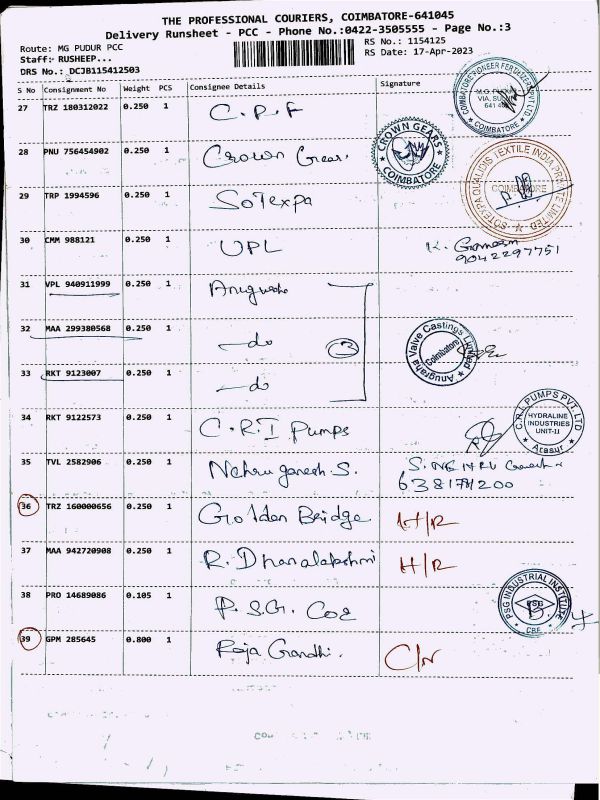 THE PROFESSIONAL COURIERS, COIMBATORE-641045
Delivery Runsheet - PCC - Phone No.:0422-3505555 - Page No.:3
Route: MG PUDUR PCC
RS No.: 1154125
Staff: RUSHEEP...
RS Date: 17-Apr-2023
DRS No.: DCJB115412503
S No Consignment No Weight PCS Consignee Details Signature
27 TRZ 180312022 0.250 1 C.P.F
28 PNU 756454902 0.250 1 Crown Gear. CROWN GEARS COIMBATORE
29 TRP 1994596 0.250 1 SoTexpa
30 CMM 988121 0.250 1 UPL K. Ganesan
9042297751
31 VPL 940911999 0.250 1 Anugraha
32 MAA 299380568 0.250 1 -do 3 Anugraha Valve Castings Limited Coimbatore
33 RKT 9123007 0.250 1 -do
34 RKT 9122573 0.250 1 C.R.I Pumps C.R.I. PUMPS PVT. LTD HYDRALINE INDUSTRIES UNIT-II Arasur
35 TVL 2582906 0.250 1 Nehru ganesh S. S. NEHRU
36 TRZ 160000656 0.250 1 Golden Bridge H/R
37 MAA 942720908 0.250 1 R. Dhanalakshmi H/R
38 PRO 14689086 0.105 1 P.S.G. Coe PSG INDUSTRIAL INSTITUTE PSG CBE
39 GPM 285645 0.800 1 Raja Gandhi. C/N